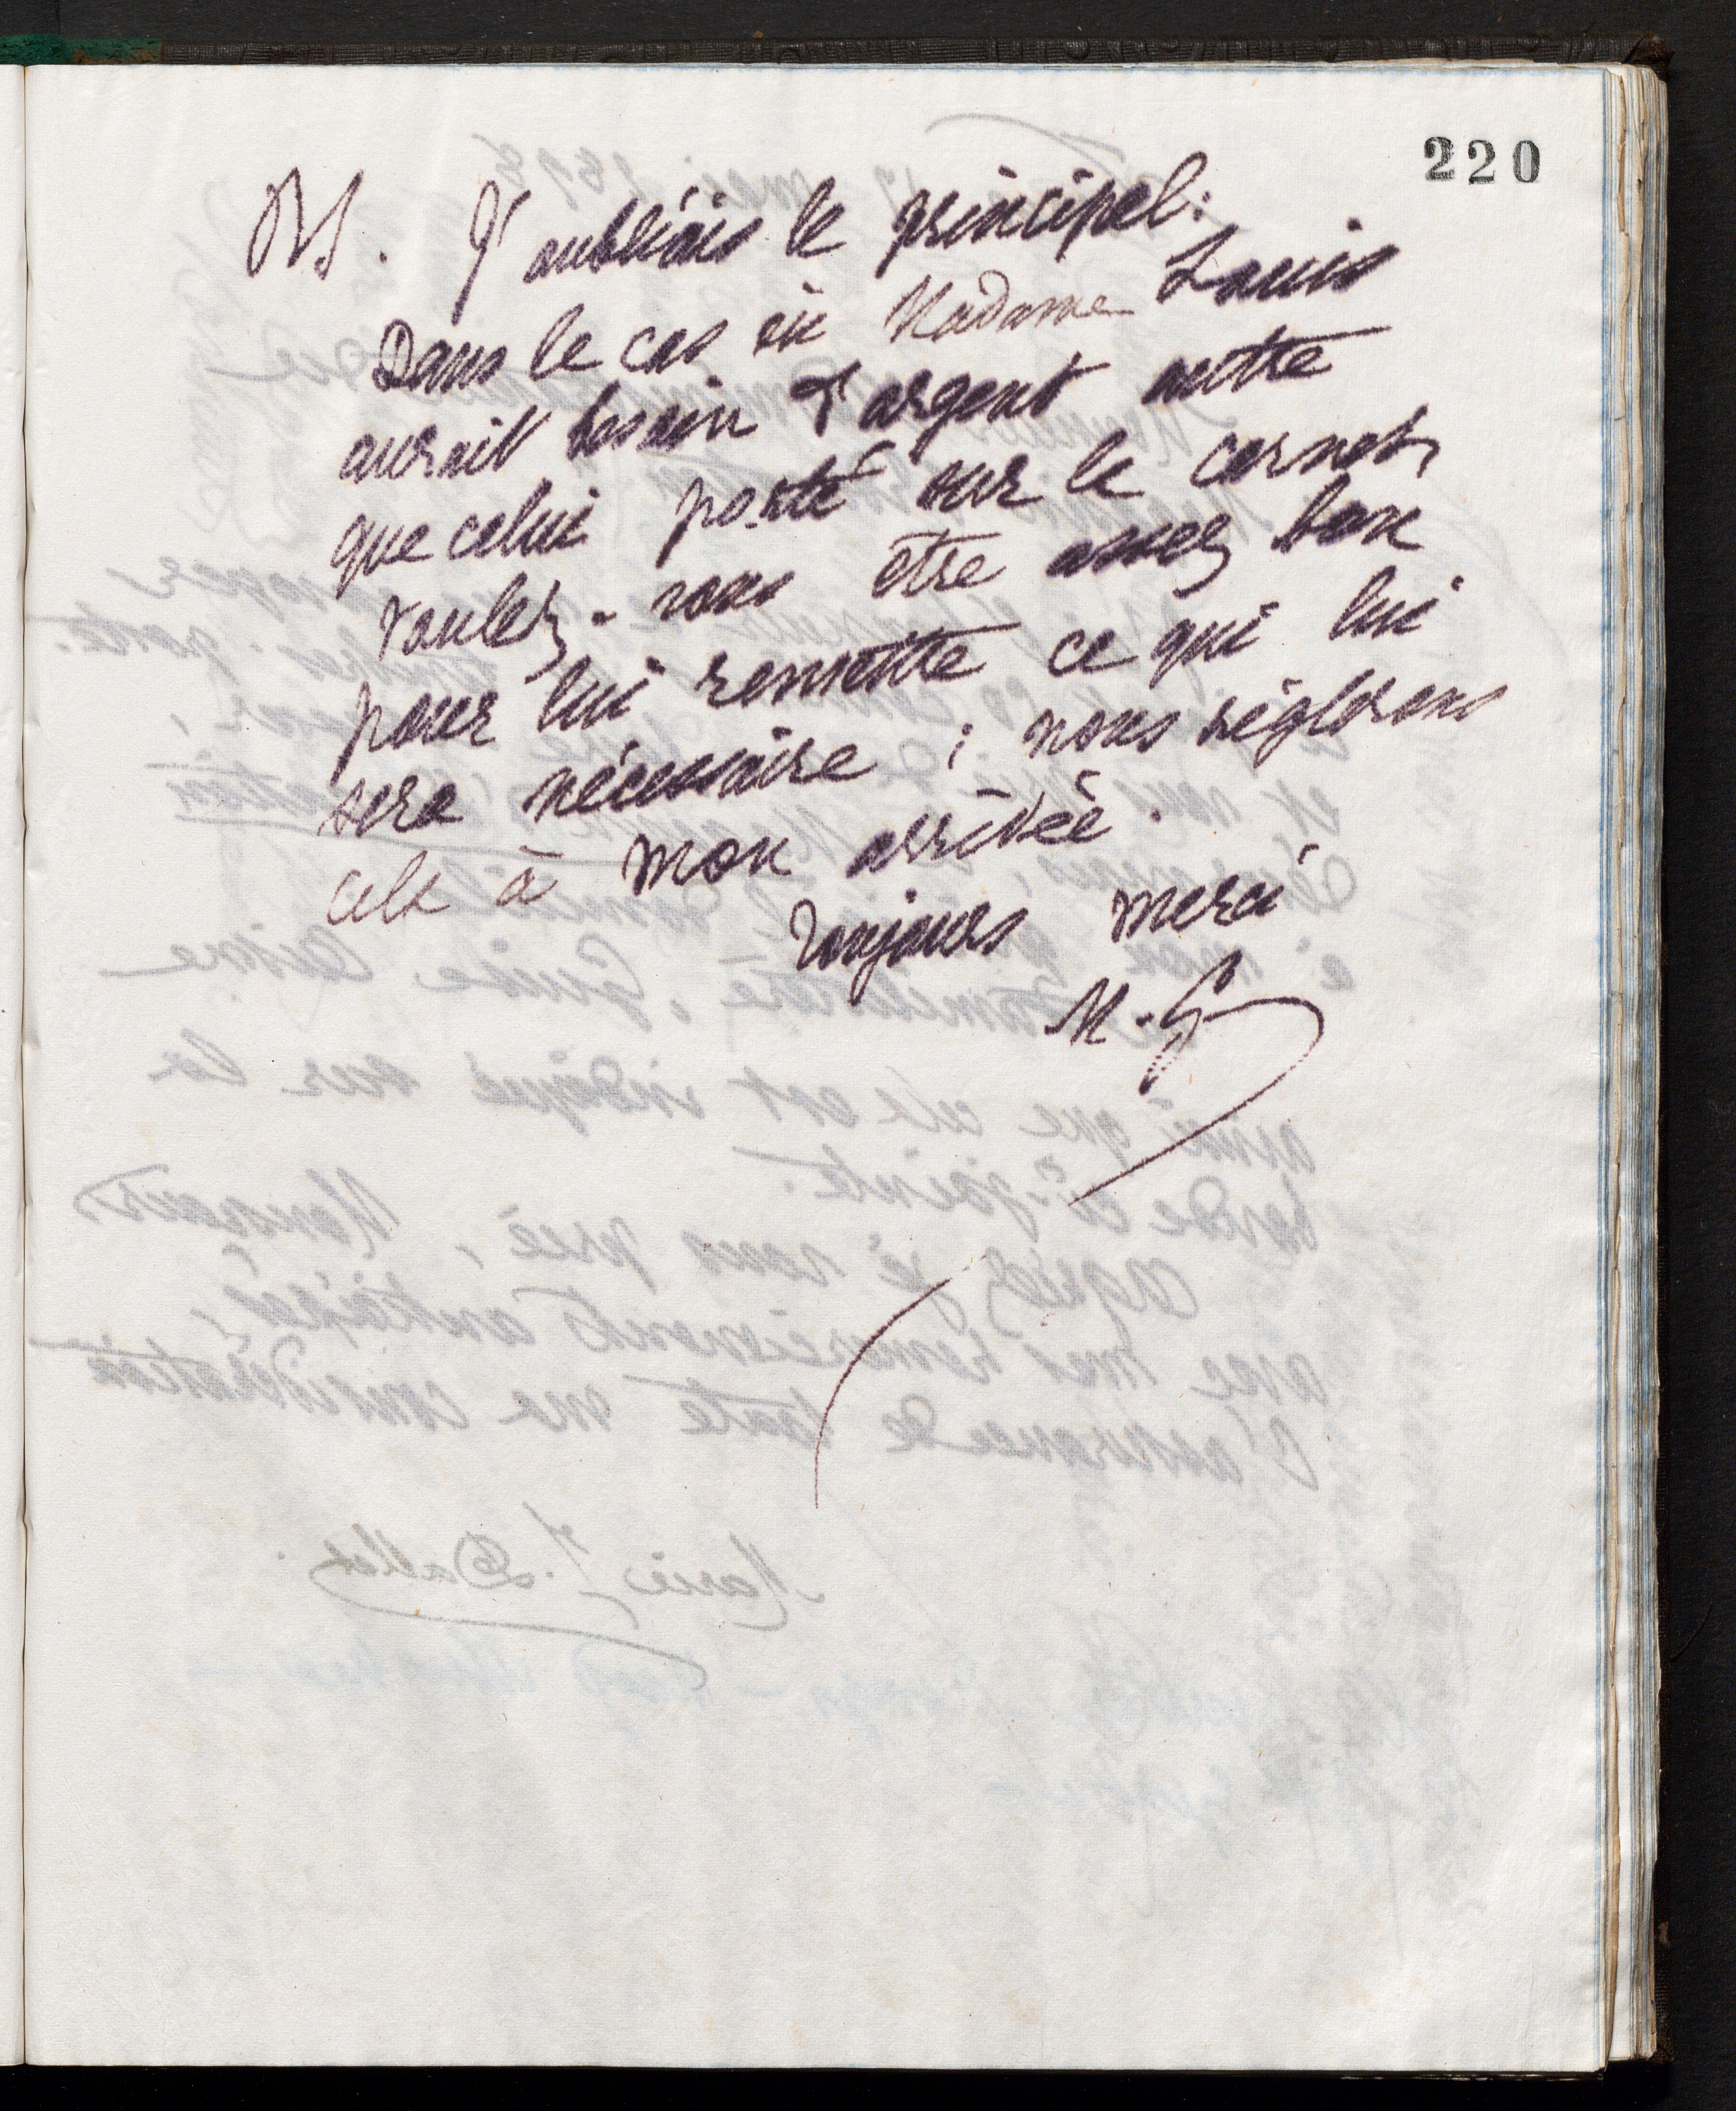 220
PS. J'oubliais le principal:
Dans le cas où Madame Louis
aurait besoin d'argent outre
que celui porté sur le carnet,
voulez-vous être assez bon
pour lui remettre ce qui lui
sera nécessaire ; nous réglerons
cela à mon arrivée.
Toujours merci
M. G